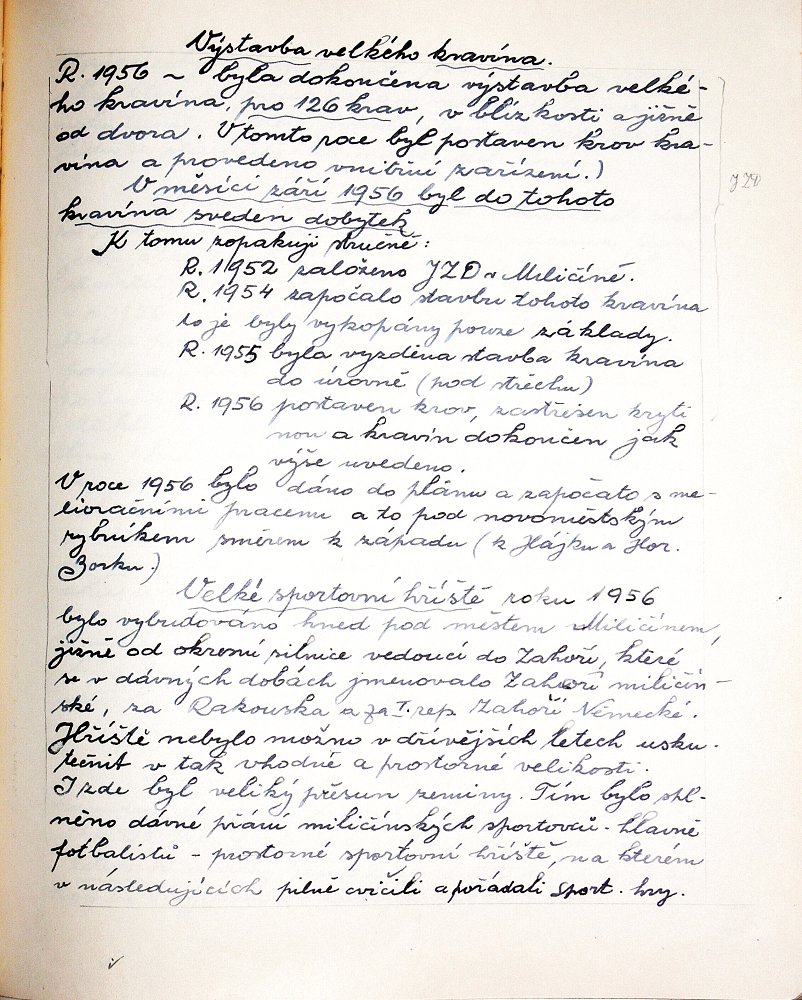 Výstavba velkého kravína.
R. 1956 – byla dokončena výstavba velké-
ho kravína, pro 126 krav, v blízkosti a jižně
od dvora. V tomto roce byl postaven krov kra-
vína a provedeno vnitřní zařízení.)
JZD
V měsíci září 1956 byl do tohoto
kravína sveden dobytek
K tomu zopakuji stručně:
R. 1952 založeno JZD v Miličíně.
R. 1954 započalo stavbu tohoto kravína
to je byly vykopány pouze základy.
R. 1955 byla vyzděna stavba kravína
do úrovně (pod střechu)
R. 1956 postaven krov, zastřešen kryti
nou a kravín dokončen jak
výše uvedeno.
V roce 1956 bylo dáno do plánu a započato s me-
lioračními pracemi a to pod novoměstským
rybníkem směrem k západu (k Hájku a Hor.
Borku.)
Velké sportovní hříště roku 1956
bylo vybudováno hned pod městem Miličínem,
jižně od okresní silnice vedoucí do Zahoří, které
se v dávných dobách jmenovalo Zahoří miličín-
ské, za Rakouska a za I. rep. Zahoří Německé.
Hříště nebylo možno v dřívějších letech usku-
tečnit v tak vhodné a prostorné velikosti.
I zde byl veliký přesun zeminy. Tím bylo spl-
něno dávné přání miličínských sportovců - hlavně
fotbalistů - prostorné sportovní hříště, na kterém
v následujících pilně cvičili a pořádali sport. hry.